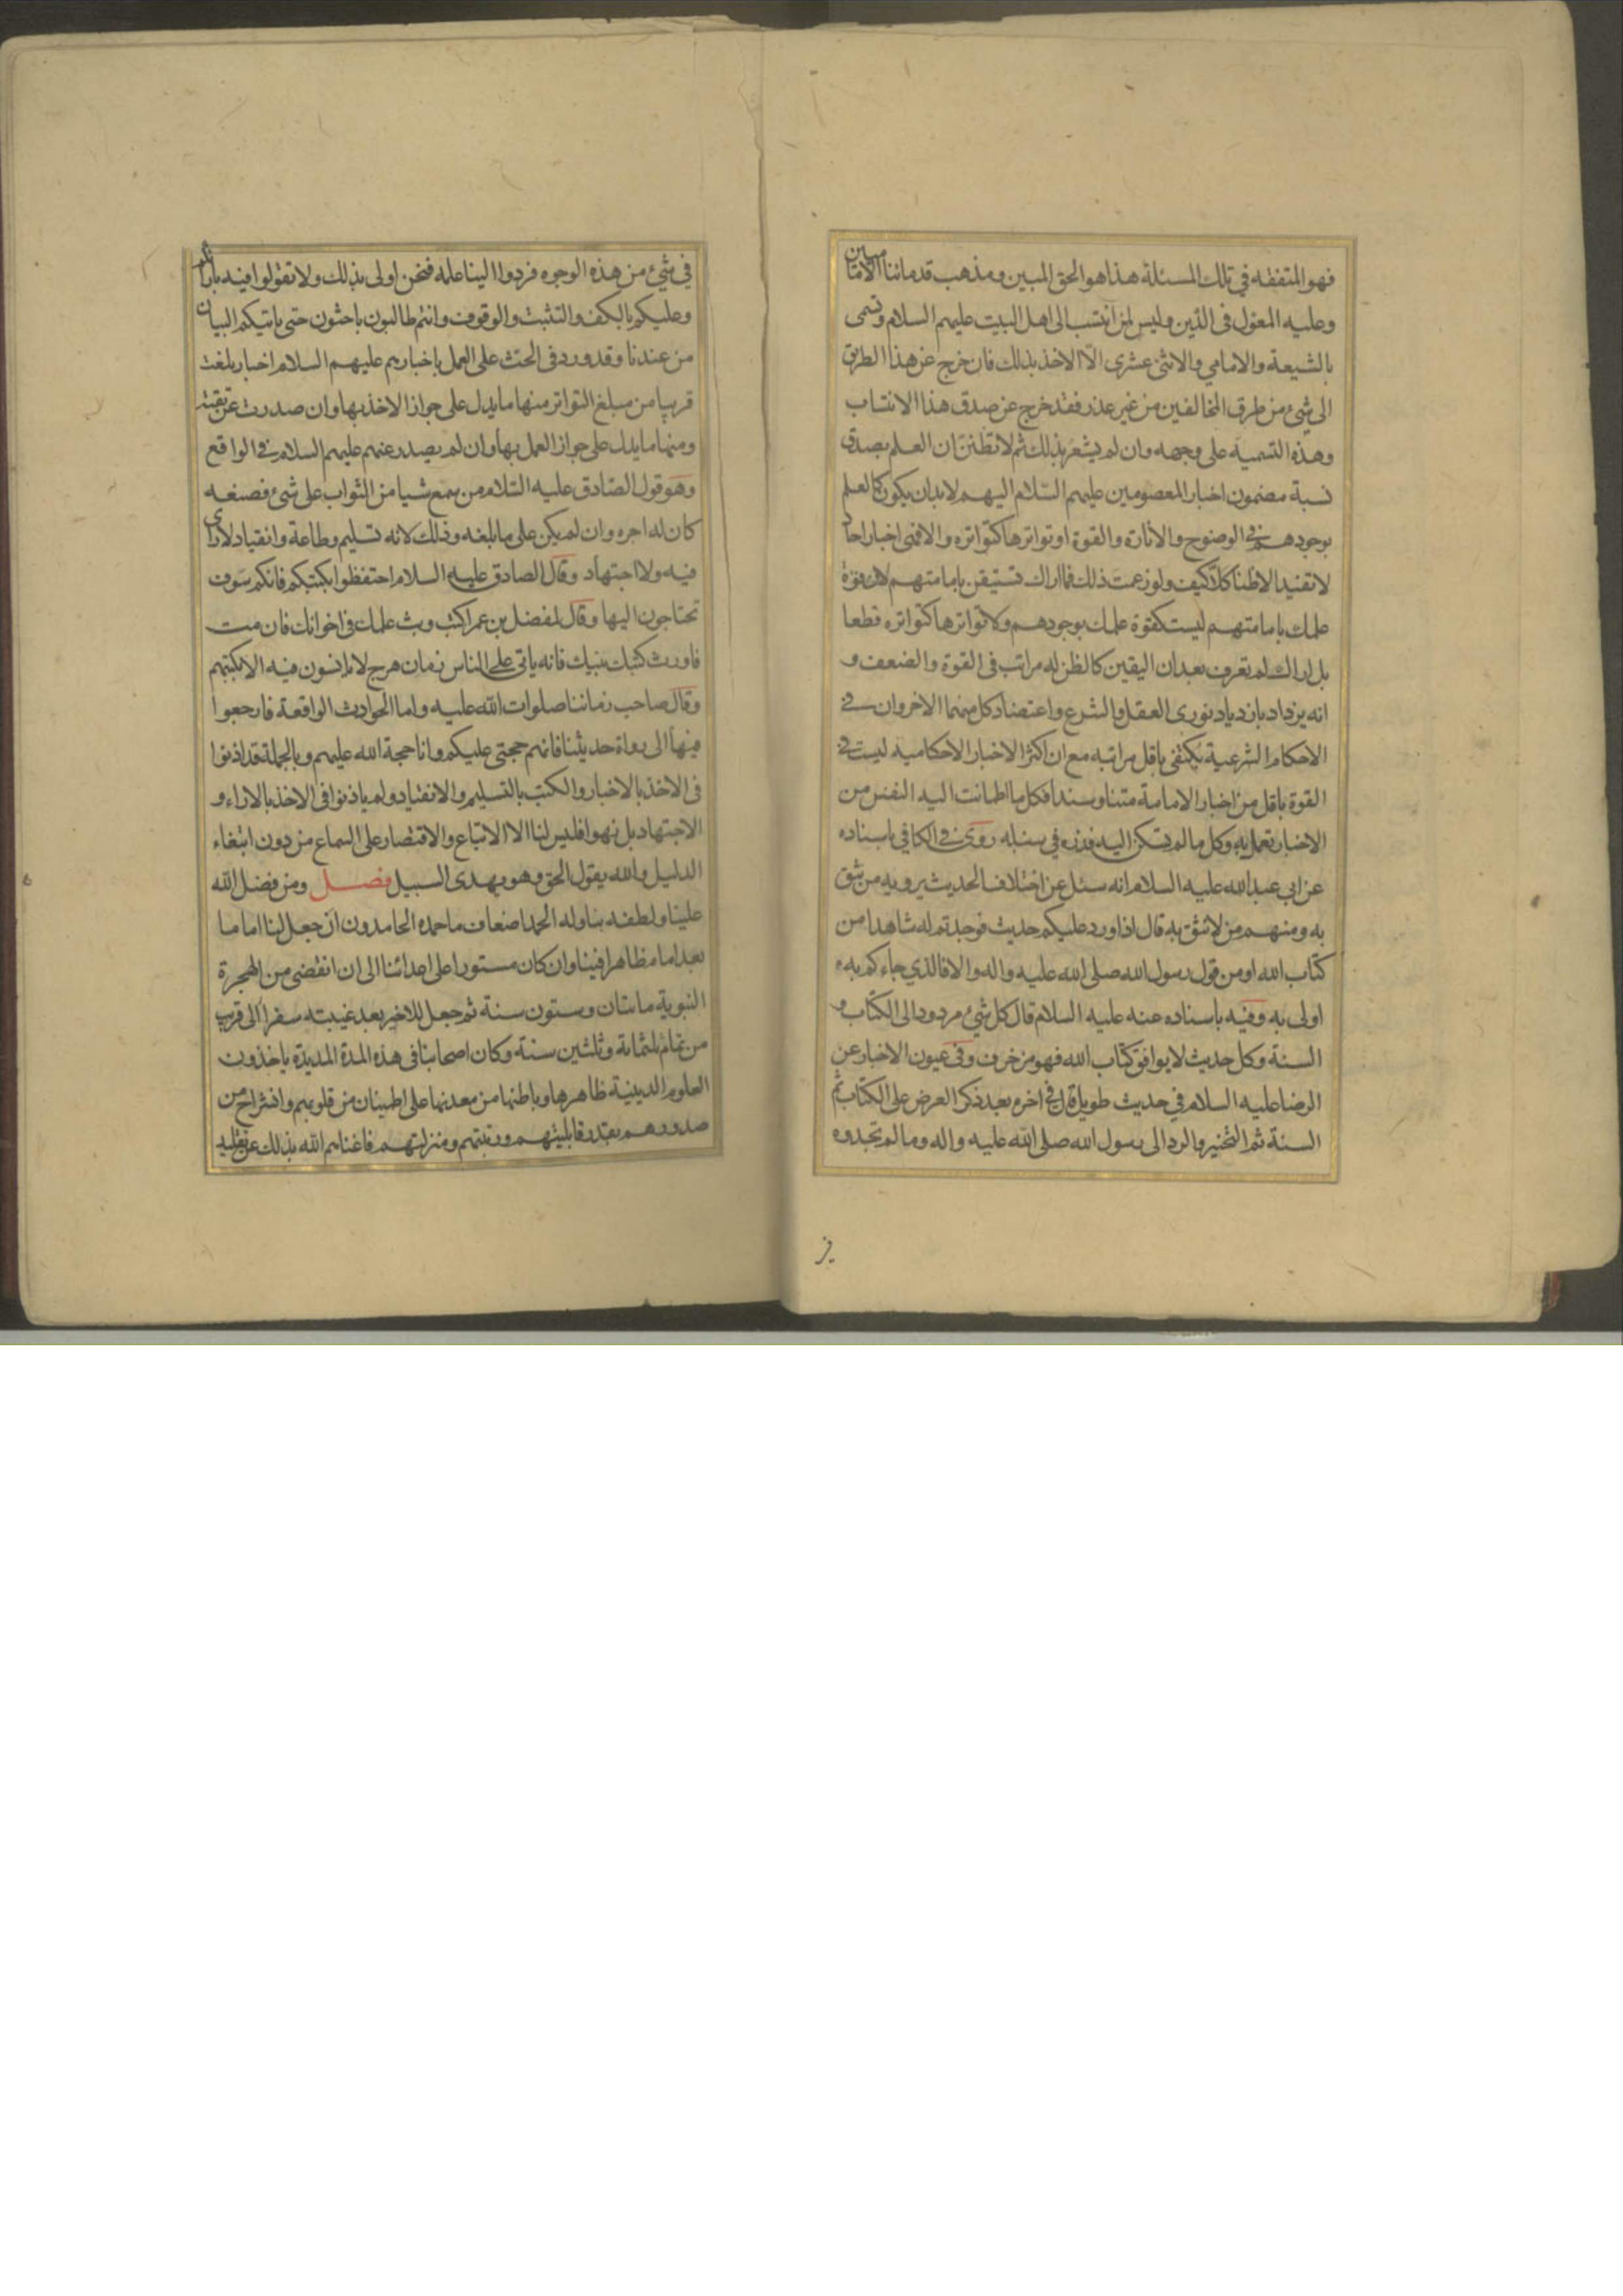 فهو المتفقه في تلك المسئلة هذا هو الحق المبين ومذهب قدمائنا الاماميين
وعليه المعول في الدين وليس لمن انتسب الى اهل البيت عليهم السلام وتسمى
بالشيعة والامامي والاثنى عشرى الّا الاخذ بذلك فان خرج عن هذا الطريق
الى شئ من طرق المخالفين من غير عذر فقد خرج عن صدق هذا الانتساب
وهذه التسمية على وجهه وان لم يشعر بذلك ثم لا تظنن ان العلم بصدق
نسبة مضمون اخبار المعصومين عليهم السّلام اليهم لابد ان يكون كالعلم
بوجودهم في الوضوح والأنارة والقوة او تواترها كتواتره والا فهى اخبار احاد
لا تفيد الا ظنا كلّا كيف ولو زعمت ذلك فما اراك تستيقن بامامتهم لان قوة
علمك بامامتهم ليست كقوة علمك بوجودهم ولا تواترها كتواتره قطعا
بل اراك لم تعرف بعد ان اليقين كالظن له مراتب فى القوة والضعف و
انه يزداد بازدياد نورى العقل والشرع واعتضاد كل منهما الاخر وان في
الاحكام الشرعية يكتفى باقل مراتبه مع ان اكثر الاخبار الاحكامية ليست في
القوة باقل من اخبار الامامة متنا وسندا فكل ما اطمانت اليه النفس من
الاخبار تعمل به وكل ما لم تسكن اليه فذره في سنبله روى في الكافي باسناده
عن ابي عبد الله عليه السلام انه سئل عن اختلاف الحديث يرويه من نثق
به ومنهم من لا نثق به قال اذا ورد عليكم حديث فوجدتم له شاهدا من
كتاب الله او من قول رسول الله صلى الله عليه واله والا فالذي جاءكم به
اولى به وفيه باسناده عنه عليه السلام قال كل شئ مردود الى الكتاب و
السنة وكل حديث لا يوافق كتاب الله فهو زخرف وفى عيون الاخبار عن
الرضا عليه السلام في حديث طويل قال في اخره بعد ذكر العرض على الكتاب ثم
السنة ثم التخيير والرد الى رسول الله صلى الله عليه واله وما لم تجدوه
في شئ من هذه الوجوه فردوا الينا علمه فنحن اولى بذلك ولا تقولوا فيه بارائكم
وعليكم بالكف والتثبت والوقوف وانتم طالبون باحثون حتى ياتيكم البيان
من عندنا وقد ورد فى الحث على العمل باخبارهم عليهم السلام اخبار بلغت
قريبا من مبلغ التواتر منها ما يدل على جواز الاخذ بها وان صدرت عن تقية
ومنها ما يدل على جواز العمل بها وان لم يصدر عنهم عليهم السلام في الواقع
وهو قول الصّادق عليه السّلام من سمع شيا من الثواب على شئ فصنعه
كان له اجره وان لم يكن على ما بلغه وذلك لانه تسليم وطاعة وانقياد لا راى
فيه ولا اجتهاد وقال الصادق عليه السلام احتفظوا بكتبكم فانكم سوف
تحتاجون اليها وقال لمفضل بن عمر اكتب وبث علمك فى اخوانك فان مت
فاورث كتبك بنيك فانه ياتى على الناس زمان هرج لا يانسون فيه الا بكتبهم
وقال صاحب زماننا صلوات الله عليه واما الحوادث الواقعة فارجعوا
فيها الى رواة حديثنا فانهم حجتى عليكم وانا حجة الله عليهم وبالجملة قد اذنوا
فى الاخذ بالاخبار والكتب بالتسليم والانقياد ولم ياذنوا فى الاخذ بالاراء و
الاجتهاد بل نهوا فليس لنا الا الاتباع والاقتصار على السماع من دون ابتغاء
الدليل والله يقول الحق وهو يهدى السبيل فصل ومن فضل الله
علينا ولطفه بنا وله الحمد اضعاف ما حمده الحامدون ان جعل لنا اماما
بعد امام ظاهرا فينا وان كان مستورا على اعدائنا الى ان انقضى من الهجرة
النبوية مائتان وستون سنة ثم جعل للاخير بعد غيبته سفرا الى قريب
من تمام ثلثمائة وثلثين سنة وكان اصحابنا فى هذه المدة المديدة ياخذون
العلوم الدينية ظاهرها وباطنها من معدنها على اطمينان من قلوبهم وانشراح من
صدورهم بقدر قابليتهم ورتبتهم ومنزلتهم فاغناهم الله بذلك عن تقليد